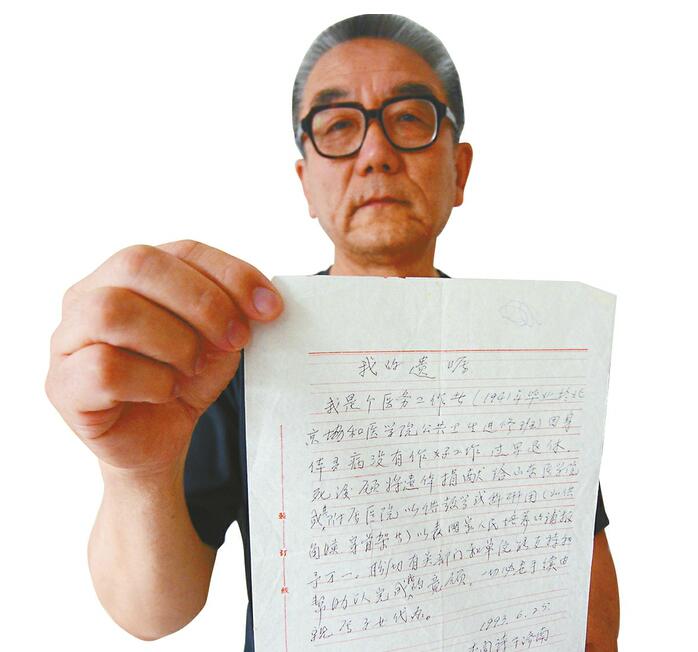 我的遗嘱
我是个医务工作者(1941年毕业于北
京协和医学院公共卫生进修班)因身
体多病没有作好工作,过早退休,
死后愿将遗体捐献给山东医学院
或附属医院以供教学或科研用(如供
角膜、骨骼等)以表国家人民培养
于万一。盼切有关部门和单位给支持和
帮助以完成我的意愿,一切必要手续由
我子女代办。
1993.6.25
于济南
装
订
线